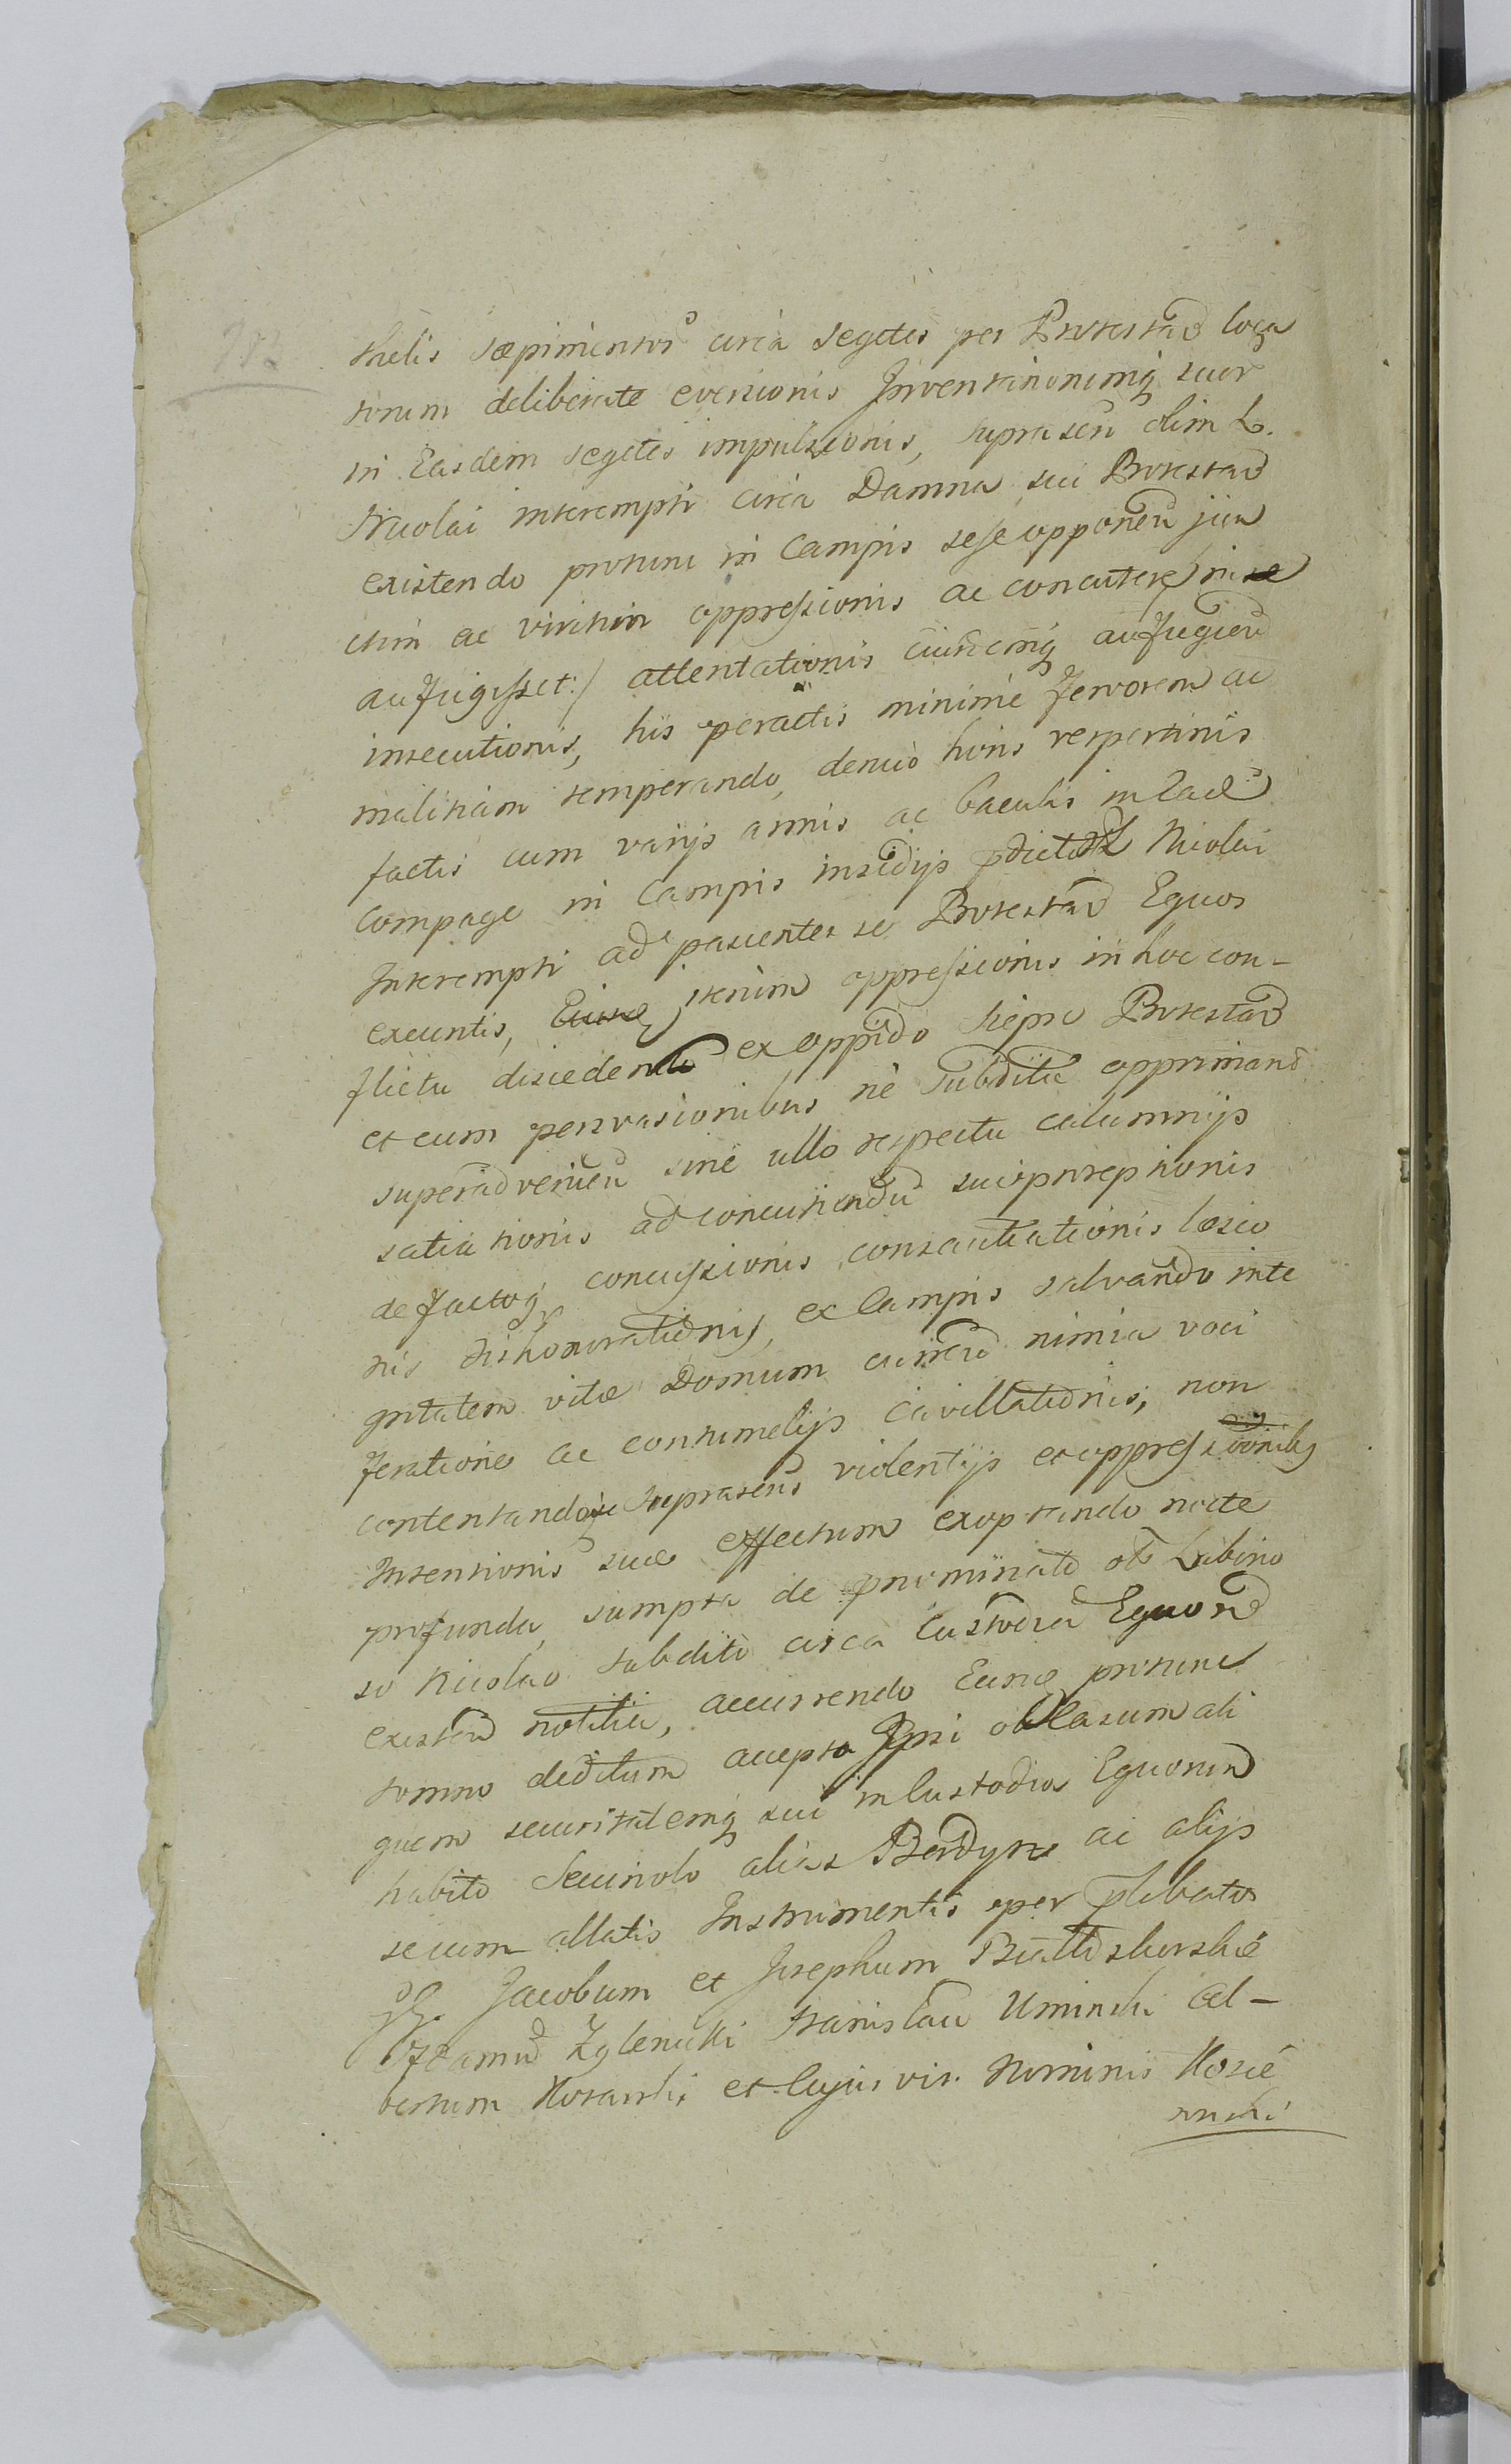 thelis sæpimentor circa segetes per Protestand loca
torum deliberate eversionis Inventariorumq suor
in Easdem segetes impulsionis, suprascri olim L.
Nicolai interempti circa Damna sui Protestand
existendo protunc in Campis sese opponen jun
ctim ac viritim oppressionis ac concutere ni
aufugisset:/ attentationis aufugien
insecutionis, his peractis minime fervorem ac
malitiam temperando, denuo horis vespertinis
factis cum varijs armis ac baculis in Ead
Compage in Campis insidijs pdicto Nicolai
Interempti ad pascentes se Protestand Equos
exeuntis, iterum oppressionis in hoc con-
flictu discedenti ex oppido Siepre Protestand
et cum persvasionibus ne subditu opprimant
superadvenien sine ullo respectu calumnijs
satiationis ad concutiendu suiq
de factoq concussionis consauciationis læsio
nis dishonorationis, ex Campis salvando inte
gritatem vitæ Domum curren nimia voci
feratione ac contumelijs cavillationis, non
contentandose suprascris violentijs et oppressionibq
Intentionis suæ effectum exoptando nocte
profunda, sumpta de prnominato ol Labino
so Nicolao subdito circa Custodia Equor
existen notitia, accurrendo Eunq protunc
somno deditum accepta Ipsi ob lasum ali
quem securitatemq sui in Custodia Equorum
habito Securiolo alias Berdysze ac alijs
secum allatis Instrumentis per plibatos
GG. Jacobum et Josephum Biattoskorskie
Adamu Zglenicki Stanislau Uminski Al-
bertum Kosarski et Cujus vis Nominis Kosie
mski